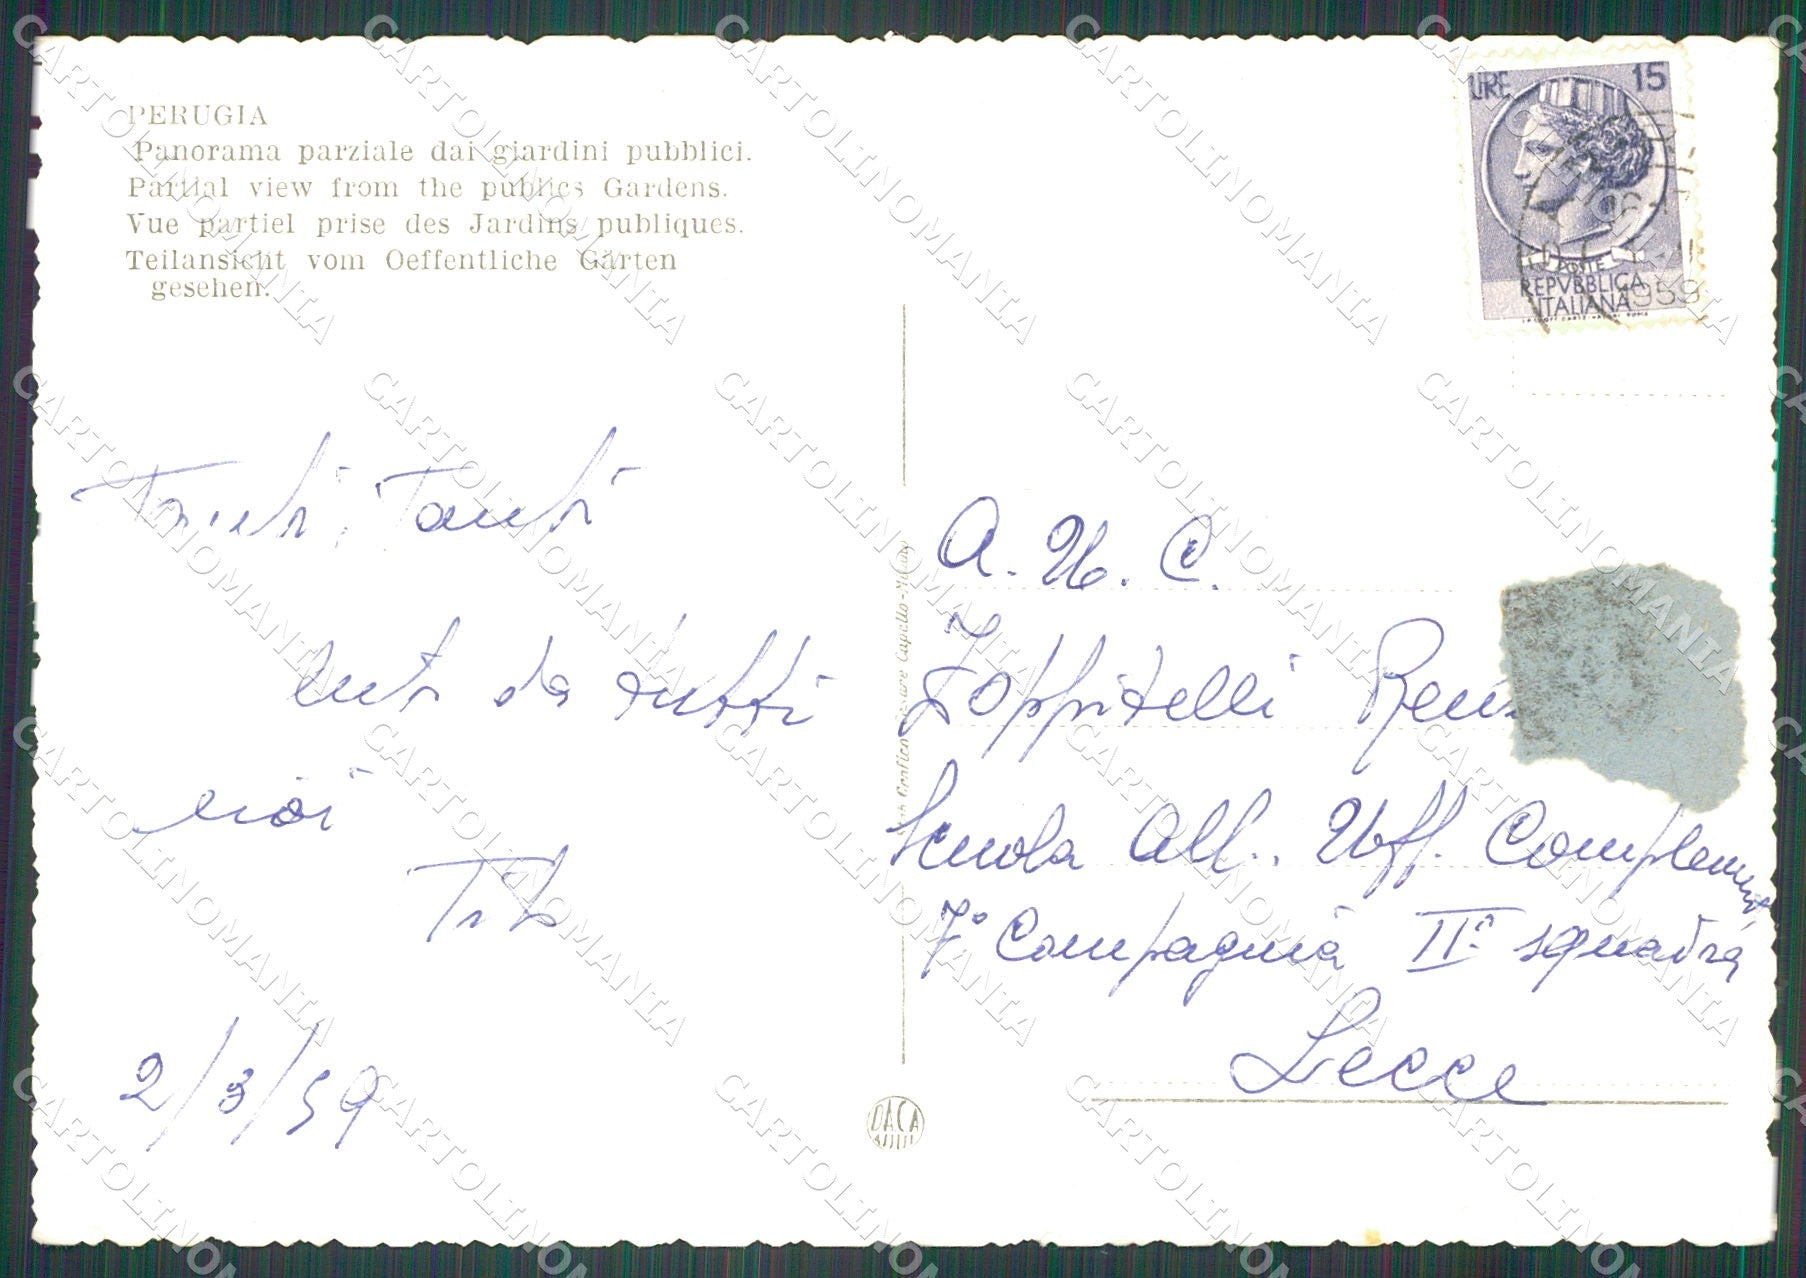 PERUGIA
Panorama parziale dai giardini pubblici.
Partial view from the publics Gardens.
Vue partiel prise des Jardins publiques.
Teilansicht vom Oeffentliche Gärten
gesehen.
LIRE 15
POSTE
REPVBBLICA
ITALIANA
1959
Tanti, Tanti
da tutti
noi
Tito
2/3/59
A. U. C.
Zoppitelli
Scuola All. Uff. Complement
7° Compagnia II° squadra
Lecce
Capello - Milano
DACA
CARTOLINOMANIA